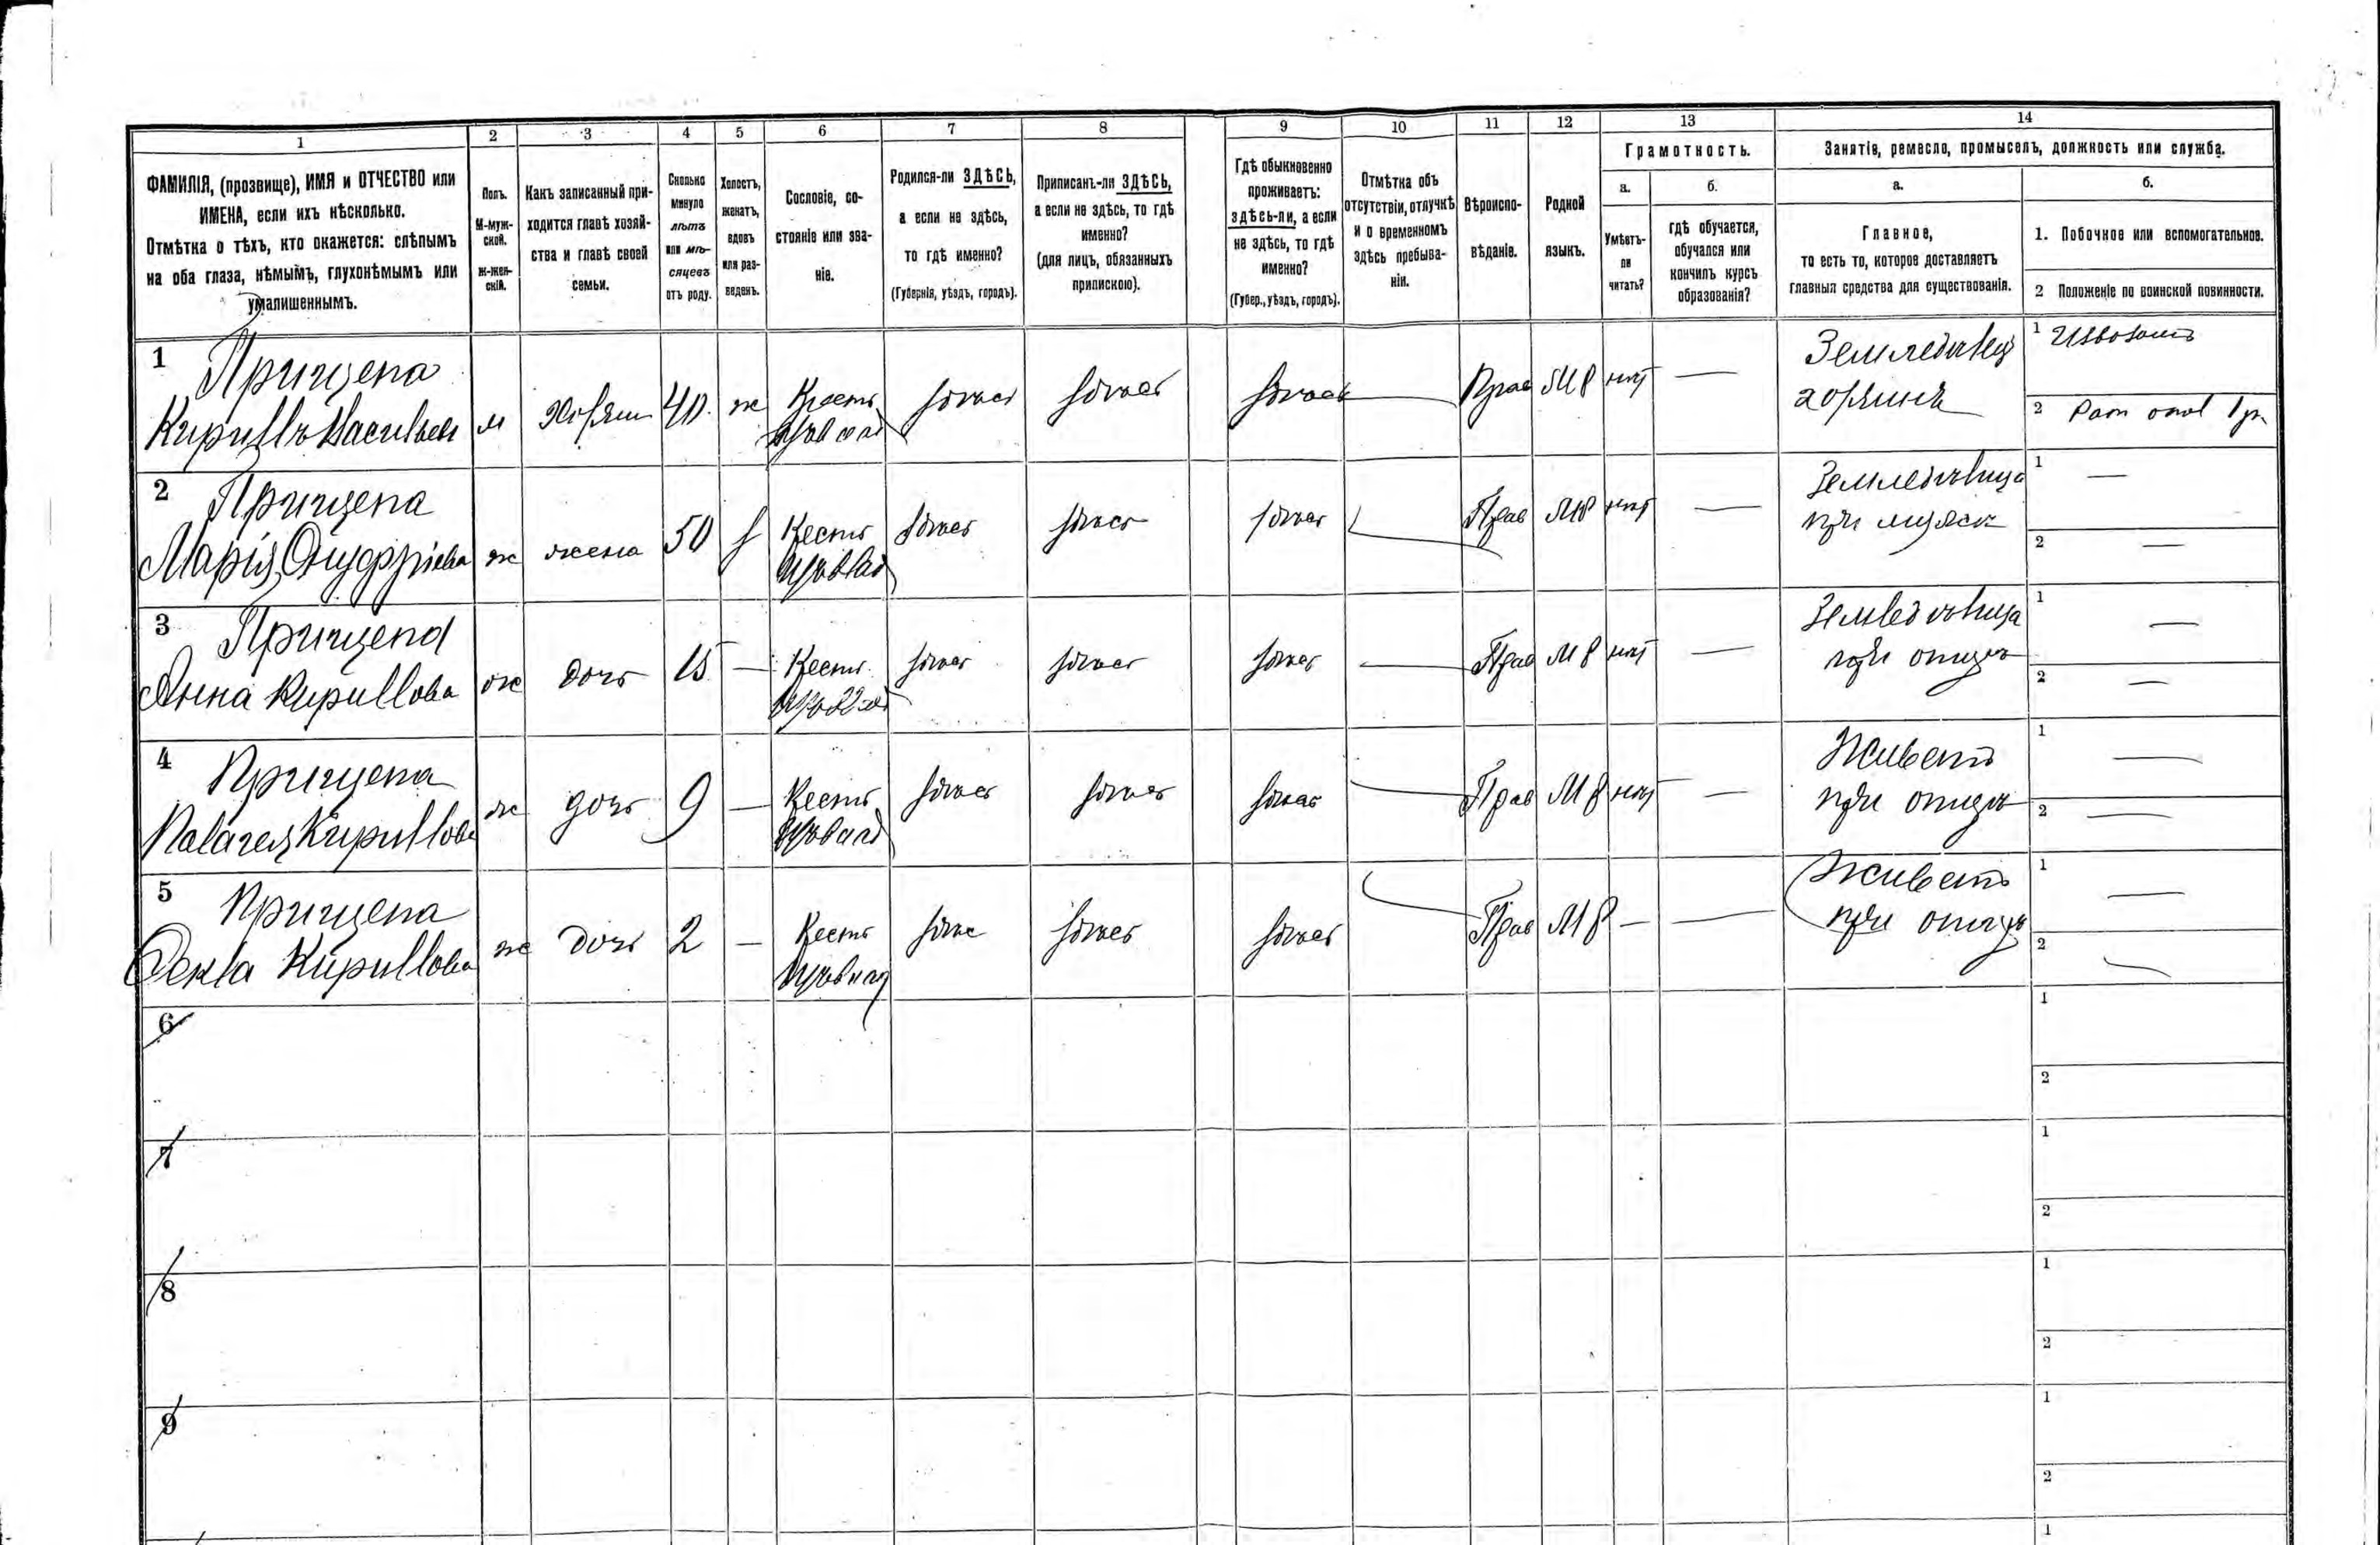 1 2 3 4 5 6 7 8 9 10 11 12 13 14
ФАМИЛІЯ, (прозвище), ИМЯ и ОТЧЕСТВО или
ИМЕНА, если ихъ нѣсколько.
Отмѣтка о тѣхъ, кто окажется: слѣпымъ
на оба глаза, нѣмымъ, глухонѣмымъ или
умалишеннымъ.
Полъ.
М-муж-
ской.
Ж-жен-
скій.
Какъ записанный при-
ходится главѣ хозяй-
ства и главѣ своей
семьи.
Сколько
минуло
лѣтъ
или мѣ-
сяцевъ
отъ роду.
Холостъ,
женатъ,
вдовъ
или раз-
веденъ.
Сословіе, со-
стояніе или зва-
ніе.
Родился-ли ЗДѢСЬ,
а если не здѣсь,
то гдѣ именно?
(Губернія, уѣздъ, городъ).
Приписанъ-ли ЗДѢСЬ,
а если не здѣсь, то гдѣ
именно?
(для лицъ, обязанныхъ
припискою).
Гдѣ обыкновенно
проживаетъ:
здѣсь-ли, а если
не здѣсь, то гдѣ
именно?
(Губер., уѣздъ, городъ).
Отмѣтка объ
отсутствіи, отлучкѣ
и о временномъ
здѣсь пребыва-
ніи.
Вѣроиспо-
вѣданіе.
Родной
языкъ.
Грамотность.
а.
Умѣетъ-
ли
читать?
б.
гдѣ обучается,
обучался или
кончилъ курсъ
образованія?
Занятіе, ремесло, промыселъ, должность или служба.
а.
Главное,
то есть то, которое доставляетъ
главныя средства для существованія.
б.
1. Побочное или вспомогательное.
2 Положеніе по воинской повинности.
1 Прищепа
Кириллъ Васильевъ м хозяин 40 ж Крестъ здѣсь здѣсь здѣсь — Прав М Р нѣтъ —
Земледѣлец
хозяинъ
1 Извозомъ
2 Рат опол 1 р
2 Прищепа
Марія Онуфріева ж жена 50 з Кестъ здѣсь здѣсь здѣсь — Прав М Р нѣтъ —
Земледѣлица
при мужѣ
1 —
2 —
3 Прищепа
Анна Кириллова ж дочь 15 — Кестъ здѣсь здѣсь здѣсь — Прав М Р нѣтъ —
Земледѣлица
при отцѣ
1 —
2 —
4 Прищепа
Палагея Кириллова ж дочь 9 — Кестъ здѣсь здѣсь здѣсь — Прав М Р нѣтъ —
Живетъ
при отцѣ
1 —
2 —
5 Прищепа
Фекла Кириллова ж дочь 2 — Кестъ здѣсь здѣсь здѣсь — Прав М Р — —
Живетъ
при отцѣ
1 —
2 —
6 1
2
7 1
2
8 1
2
9 1
2
1